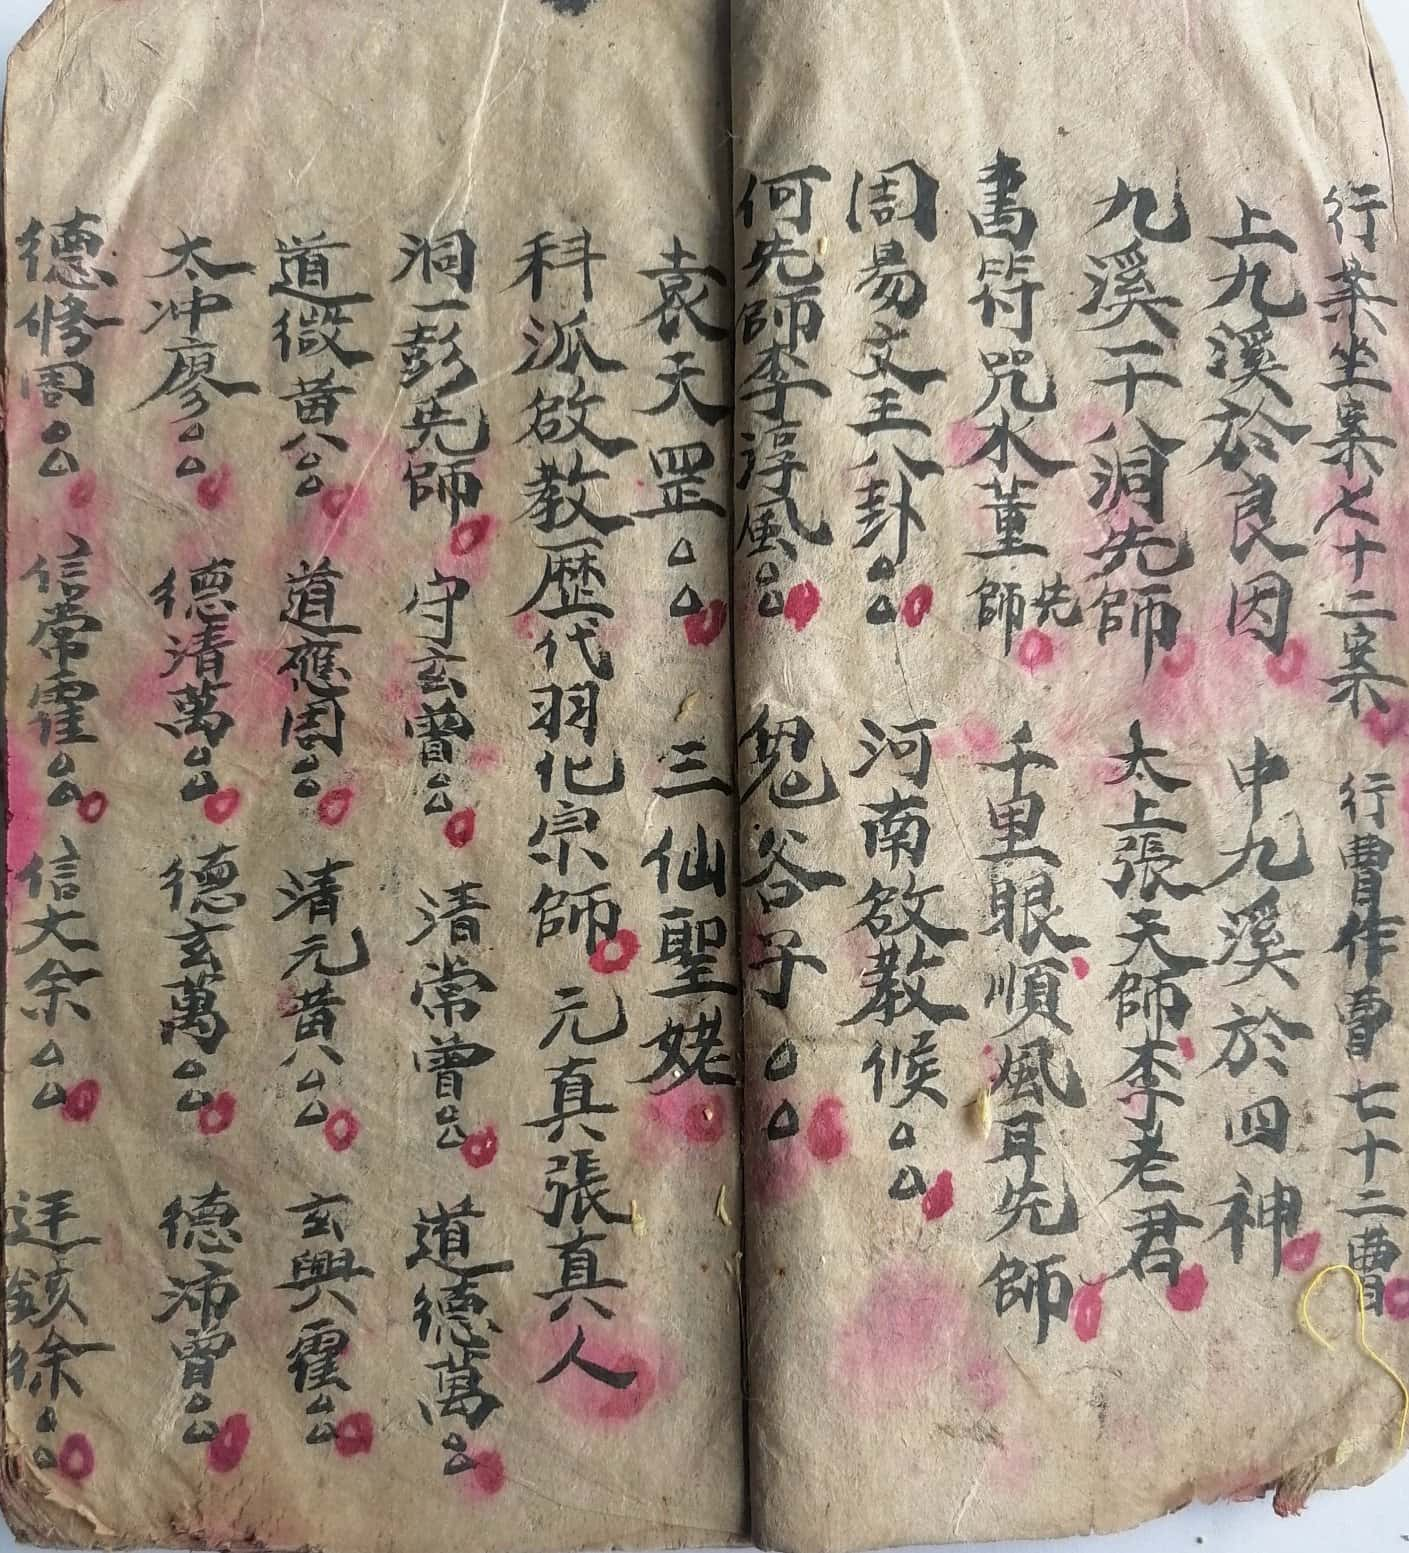 行某坐案七十二案 行曹作曹七十二曹
上九溪於良因 中九溪於四神
九溪一十八洞先師 太上張天師李老君
書符咒水董先師 千里眼順風耳先師
周易文王八卦 河南啟教候
何先師李淳風 鬼谷子
袁天罡 三仙聖姥
科派啟教歷代羽化宗師 元真張真人
洞一彭先師 守玄曾 清常曾 道德萬
道微黃公 道應周 清元黃 玄興霍
太冲廖 德清萬 德玄萬 德沛曾
德修周 信常霍 信文余 徐